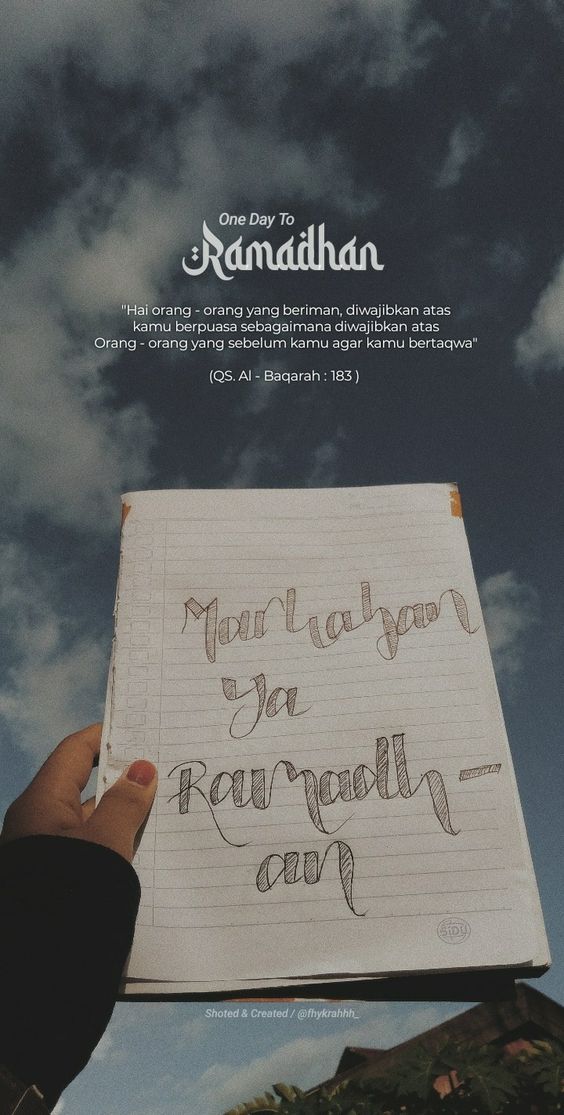 One Day To
Ramadhan
"Hai orang - orang yang beriman, diwajibkan atas
kamu berpuasa sebagaimana diwajibkan atas
Orang - orang yang sebelum kamu agar kamu bertaqwa"
(QS. Al - Baqarah : 183 )
Marhaban
Ya
Ramadh-
an
SiDU
Shoted & Created / @fhykrahhh_